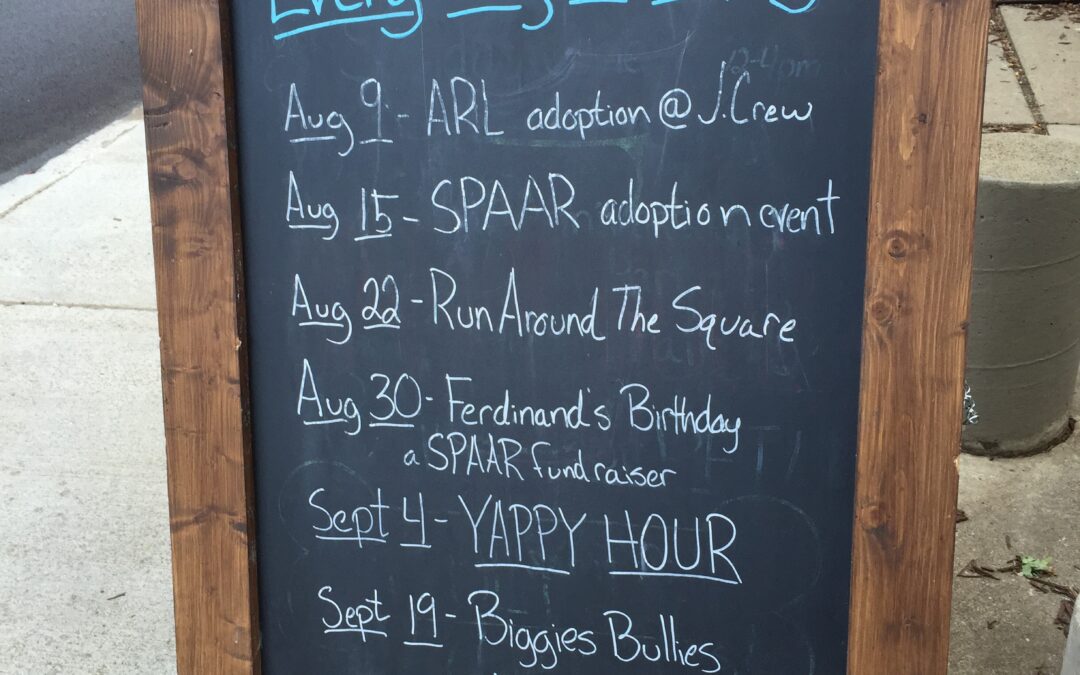 Every
Aug 9 - ARL adoption @ J.Crew
Aug 15 - SPAAR adoption event
Aug 22 - Run Around The Square
Aug 30 - Ferdinand's Birthday
a SPAAR fundraiser
Sept 4 - YAPPY HOUR
Sept 19 - Biggies Bullies